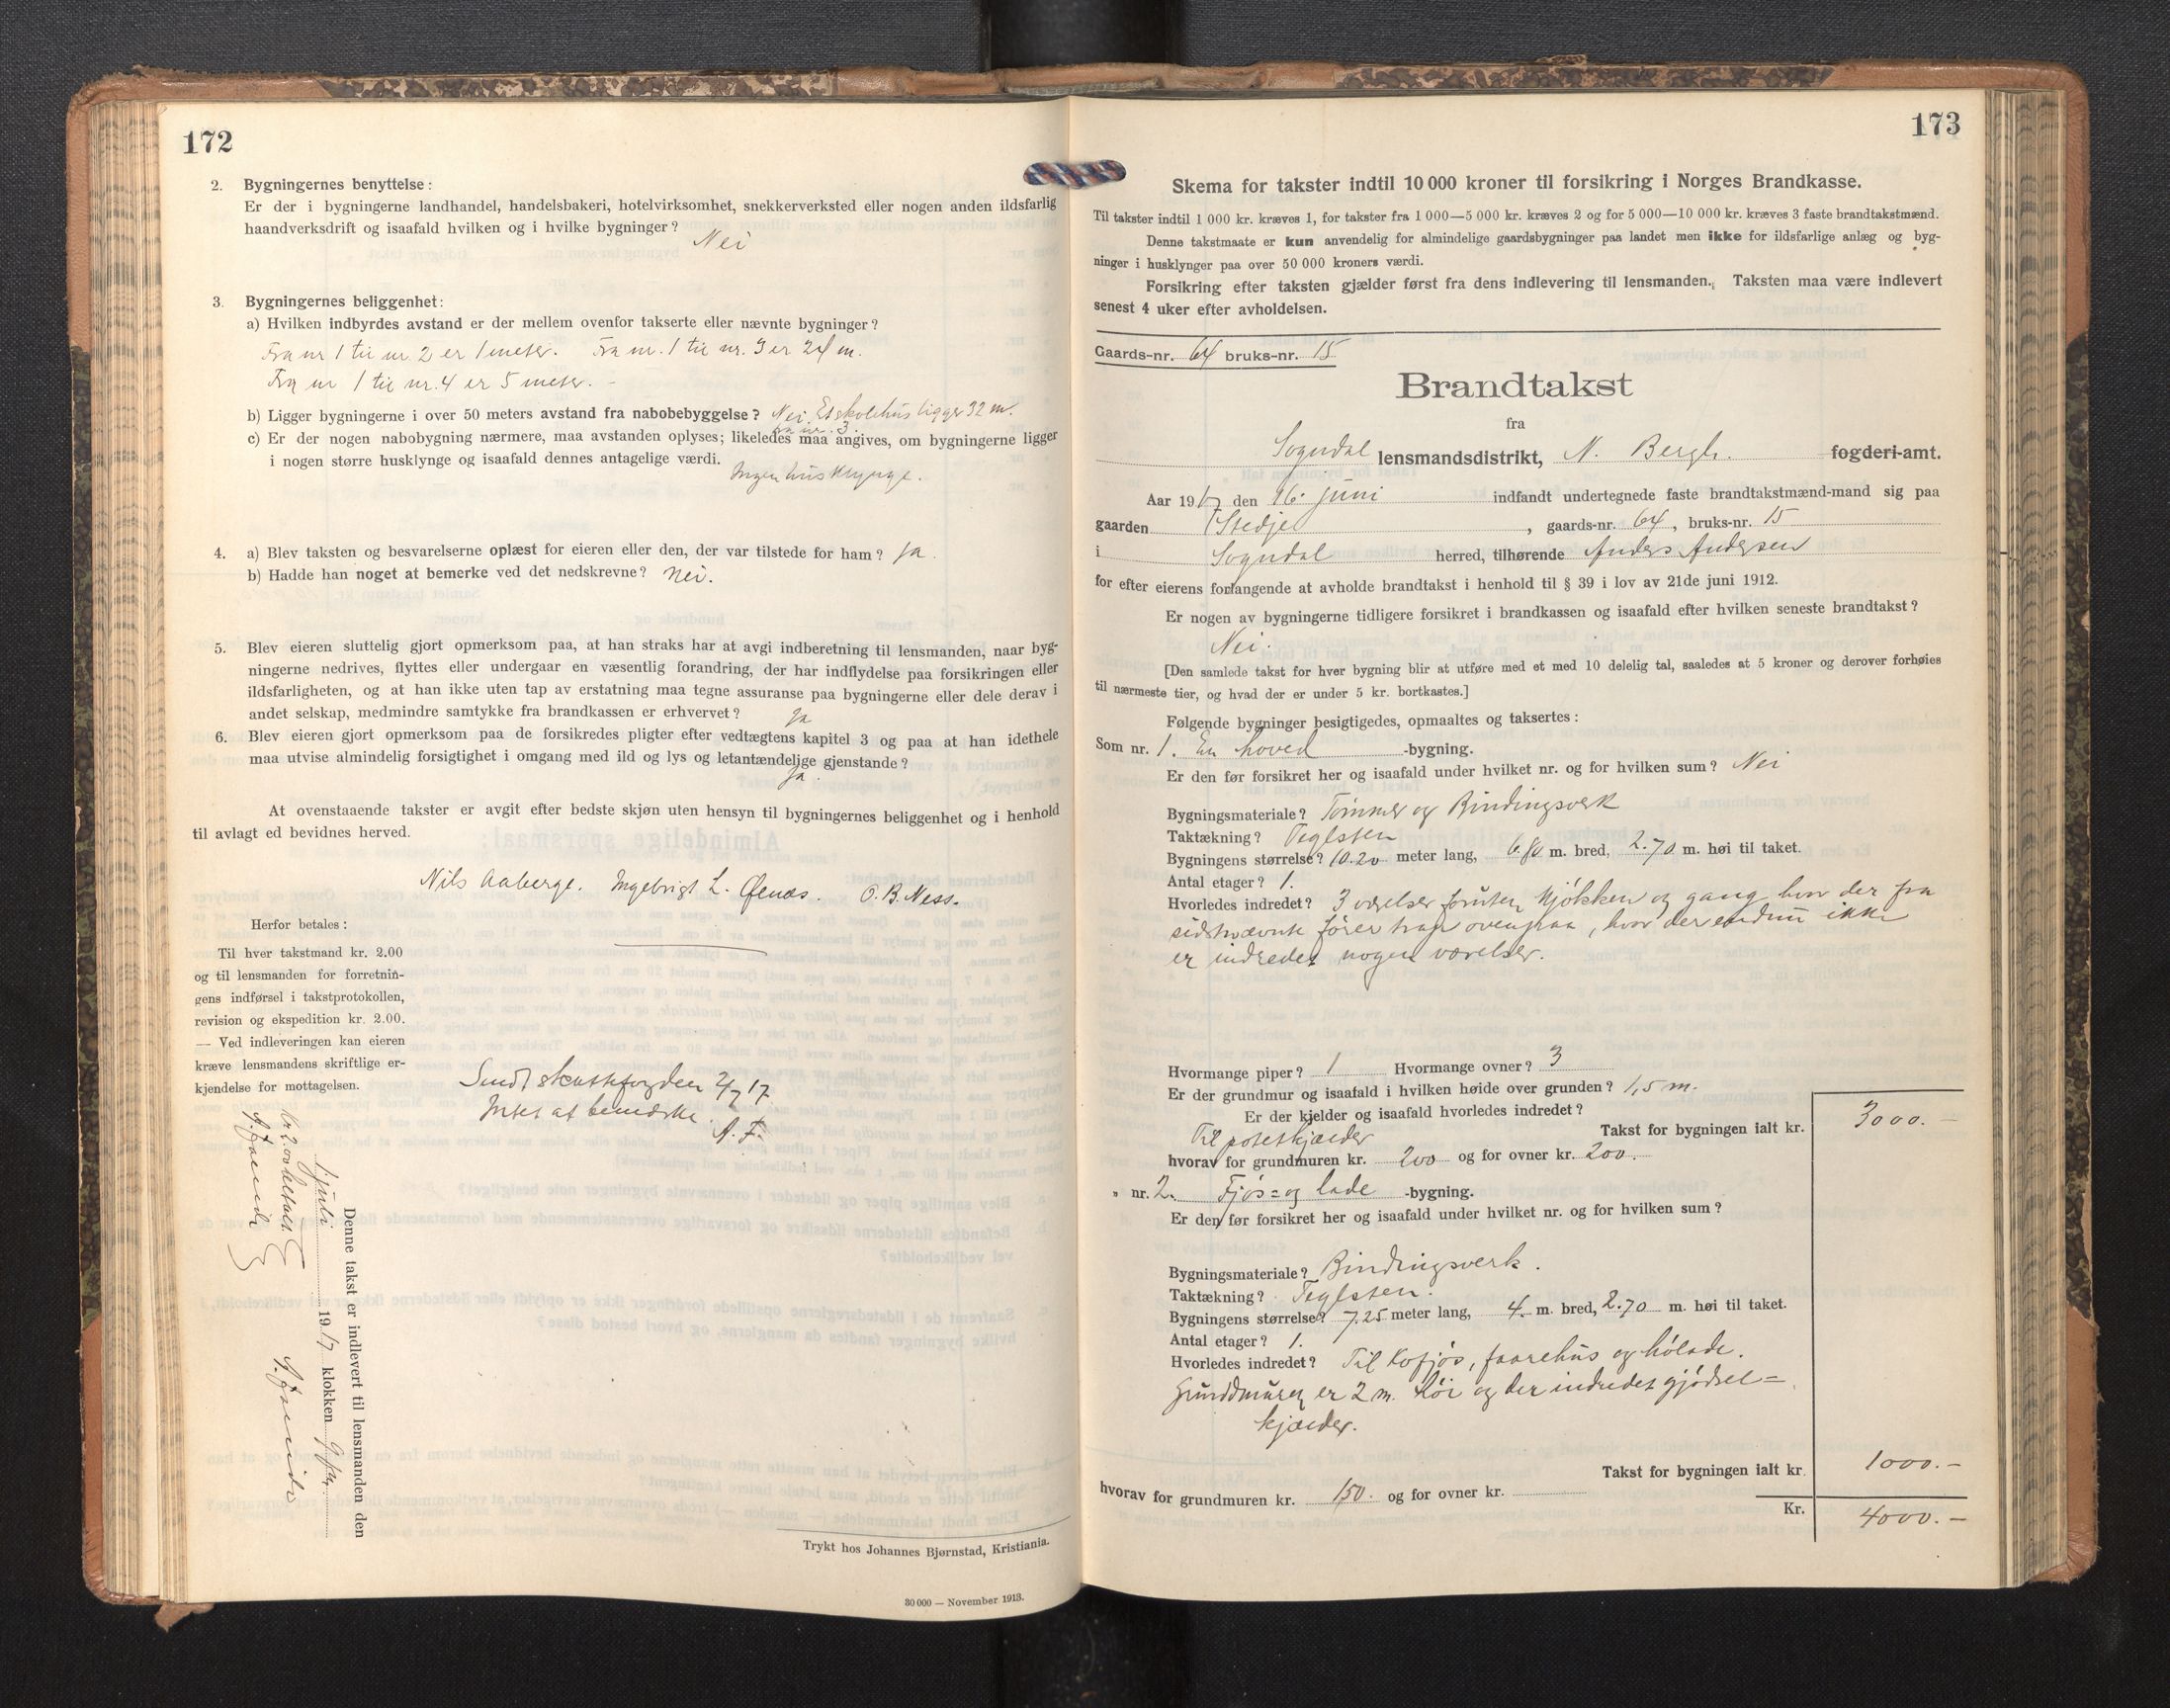 172
2. Bygningernes benyttelse:
Er der i bygningerne landhandel, handelsbakeri, hotelvirksomhet, snekkerverksted eller nogen anden ildsfarlig
haandverksdrift og isaafald hvilken og i hvilke bygninger? Nei
3. Bygningernes beliggenhet:
a) Hvilken indbyrdes avstand er der mellem ovenfor takserte eller nævnte bygninger?
Fra nr 1 til nr 2 er 1 meter. Fra nr. 1 til nr. 3 er 24 m.
Fra nr 1 til nr. 4 er 5 meter. -
b) Ligger bygningerne i over 50 meters avstand fra nabobebyggelse? Nei. Et skolehus ligger 32 m.
fra nr. 3.
c) Er der nogen nabobygning nærmere, maa avstanden oplyses; likeledes maa angives, om bygningerne ligger
i nogen større husklynge og isaafald dennes antagelige værdi.
Ingen husklynge.
4. a) Blev taksten og besvarelserne oplæst for eieren eller den, der var tilstede for ham? Ja
b) Hadde han noget at bemerke ved det nedskrevne? Nei.
5. Blev eieren sluttelig gjort opmerksom paa, at han straks har at avgi indberetning til lensmanden, naar byg-
ningerne nedrives, flyttes eller undergaar en væsentlig forandring, der har indflydelse paa forsikringen eller
ildsfarligheten, og at han ikke uten tap av erstatning maa tegne assuranse paa bygningerne eller dele derav i
andet selskap, medmindre samtykke fra brandkassen er erhvervet? Ja
6. Blev eieren gjort opmerksom paa de forsikredes pligter efter vedtægtens kapitel 3 og paa at han idethele
maa utvise almindelig forsigtighet i omgang med ild og lys og letantændelige gjenstande?
Ja.
At ovenstaaende takster er avgit efter bedste skjøn uten hensyn til bygningernes beliggenhet og i henhold
til avlagt ed bevidnes herved.
Nils Aaberge. Ingebrigt L. O. B. Ness.
Herfor betales:
Til hver takstmand kr. 2.00
og til lensmanden for forretnin-
gens indførsel i takstprotokollen,
revision og ekspedition kr. 2.00.
— Ved indleveringen kan eieren
kræve lensmandens skriftlige er-
kjendelse for mottagelsen.
Sendt skattefogden 2/7 17.
Intet at bemerke. A. F.
Denne takst er indlevert til lensmanden den
juli 1917 klokken 9 fm.
Kr 2.00 betalt
Trykt hos Johannes Bjørnstad, Kristiania.
30 000 — November 1913.
173
Skema for takster indtil 10 000 kroner til forsikring i Norges Brandkasse.
Til takster indtil 1 000 kr. kræves 1, for takster fra 1 000—5 000 kr. kræves 2 og for 5 000—10 000 kr. kræves 3 faste brandtakstmænd.
Denne takstmaate er kun anvendelig for almindelige gaardsbygninger paa landet men ikke for ildsfarlige anlæg og byg-
ninger i husklynger paa over 50 000 kroners værdi.
Forsikring efter taksten gjælder først fra dens indlevering til lensmanden. Taksten maa være indlevert
senest 4 uker efter avholdelsen.
Gaards-nr. 64 bruks-nr. 15
Brandtakst
fra
Sogndal lensmandsdistrikt, N. Bergh. fogderi-amt.
Aar 1917 den 16. juni indfandt undertegnede faste brandtakstmænd-mand sig paa
gaarden Stedje, gaards-nr. 64, bruks-nr. 15
i Sogndal herred, tilhørende Anders Andersen
for efter eierens forlangende at avholde brandtakst i henhold til § 39 i lov av 21de juni 1912.
Er nogen av bygningerne tidligere forsikret i brandkassen og isaafald efter hvilken seneste brandtakst?
Nei.
[Den samlede takst for hver bygning blir at utføre med et med 10 delelig tal, saaledes at 5 kroner og derover forhøies
til nærmeste tier, og hvad der er under 5 kr. bortkastes.]
Følgende bygninger besigtigedes, opmaaltes og taksertes:
Som nr. 1. En hoved -bygning.
Er den før forsikret her og isaafald under hvilket nr. og for hvilken sum? Nei
Bygningsmateriale? Tømmer og Bindingsverk
Taktækning? Teglsten
Bygningens størrelse? 10.20 meter lang, 6.80 m. bred, 2.70 m. høi til taket.
Antal etager? 1.
Hvorledes indredet? 3 værelser foruten kjøkken og gang hvor der fra
sidstnævnte fører trap ovenpaa, hvor der endnu ikke
er indredet nogen værelser.
Hvormange piper? 1 Hvormange ovner? 3
Er der grundmur og isaafald i hvilken høide over grunden? 1,5 m.
Er der kjelder og isaafald hvorledes indredet?
Til potetkjælder
Takst for bygningen ialt kr. 3000.-
hvorav for grundmuren kr. 200 og for ovner kr. 200.
" nr. 2. Fjøs= og lade -bygning.
Er den før forsikret her og isaafald under hvilket nr. og for hvilken sum?
Bygningsmateriale? Bindingsverk.
Taktækning? Teglsten.
Bygningens størrelse? 7.25 meter lang, 4. m. bred, 2.70 m. høi til taket.
Antal etager? 1.
Hvorledes indredet? Til kofjøs, faarehus og hølade.
Grundmuren er 2 m. høi og der indredet gjødsel=
kjælder.
Takst for bygningen ialt kr. 1000.-
hvorav for grundmuren kr. 150. og for ovner kr.
Kr. 4000.-